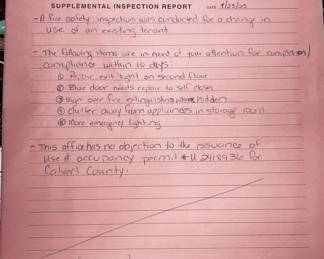 SUPPLEMENTAL INSPECTION REPORT DATE 1/23/25
- A fire safety inspection was conducted for a change in
use of an existing tenant
- The following items are in need of your attention for completion/
compliance within 10 days:
① exit light on second floor
② Blue door needs repair to self close
③ Sign over fire extinguishers where hidden.
④ Clutter away from appliances in storage room.
⑤ More emergency lighting
- This office has no objection to the issuance of
use & occupancy permit # U 2418936 for
Calvert County.